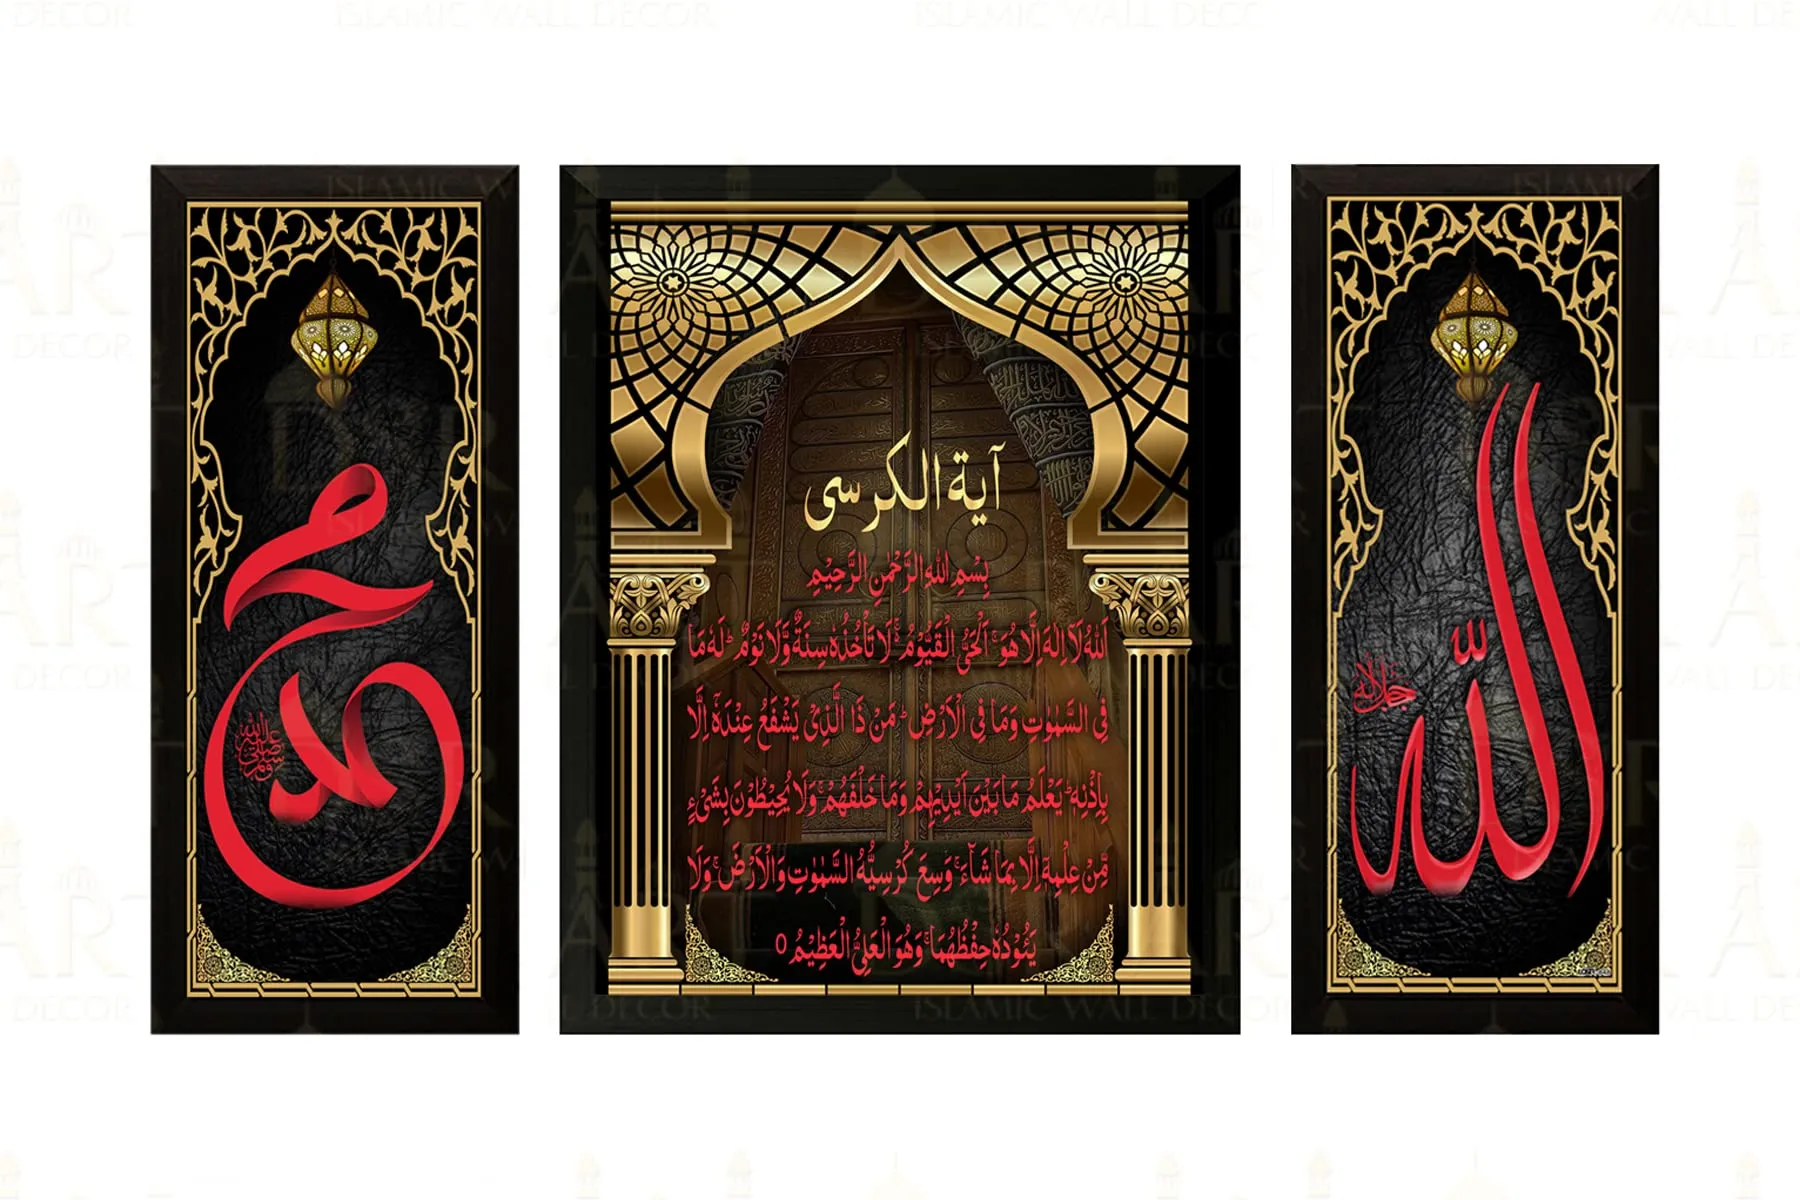 الله
جل جلاله
آية الكرسى
بِسْمِ اللهِ الرَّحْمٰنِ الرَّحِيْمِ
اَللهُ لَآ اِلٰهَ اِلَّا هُوَ ۚ اَلْحَيُّ الْقَيُّوْمُ ۚ لَا تَاْخُذُهٗ سِنَةٌ وَّلَا نَوْمٌ ؕ لَهٗ مَا
فِى السَّمٰوٰتِ وَمَا فِى الْاَرْضِ ؕ مَنْ ذَا الَّذِىْ يَشْفَعُ عِنْدَهٗۤ اِلَّا
بِاِذْنِهٖ ؕ يَعْلَمُ مَا بَيْنَ اَيْدِيْهِمْ وَمَا خَلْفَهُمْ ۚ وَلَا يُحِيْطُوْنَ بِشَىْءٍ
مِّنْ عِلْمِهٖۤ اِلَّا بِمَا شَآءَ ۚ وَسِعَ كُرْسِيُّهُ السَّمٰوٰتِ وَالْاَرْضَ ۚ وَلَا
يَـُٔوْدُهٗ حِفْظُهُمَا ۚ وَهُوَ الْعَلِىُّ الْعَظِيْمُ ○
محمد
صلى الله عليه وسلم
ISLAMIC WALL DECOR